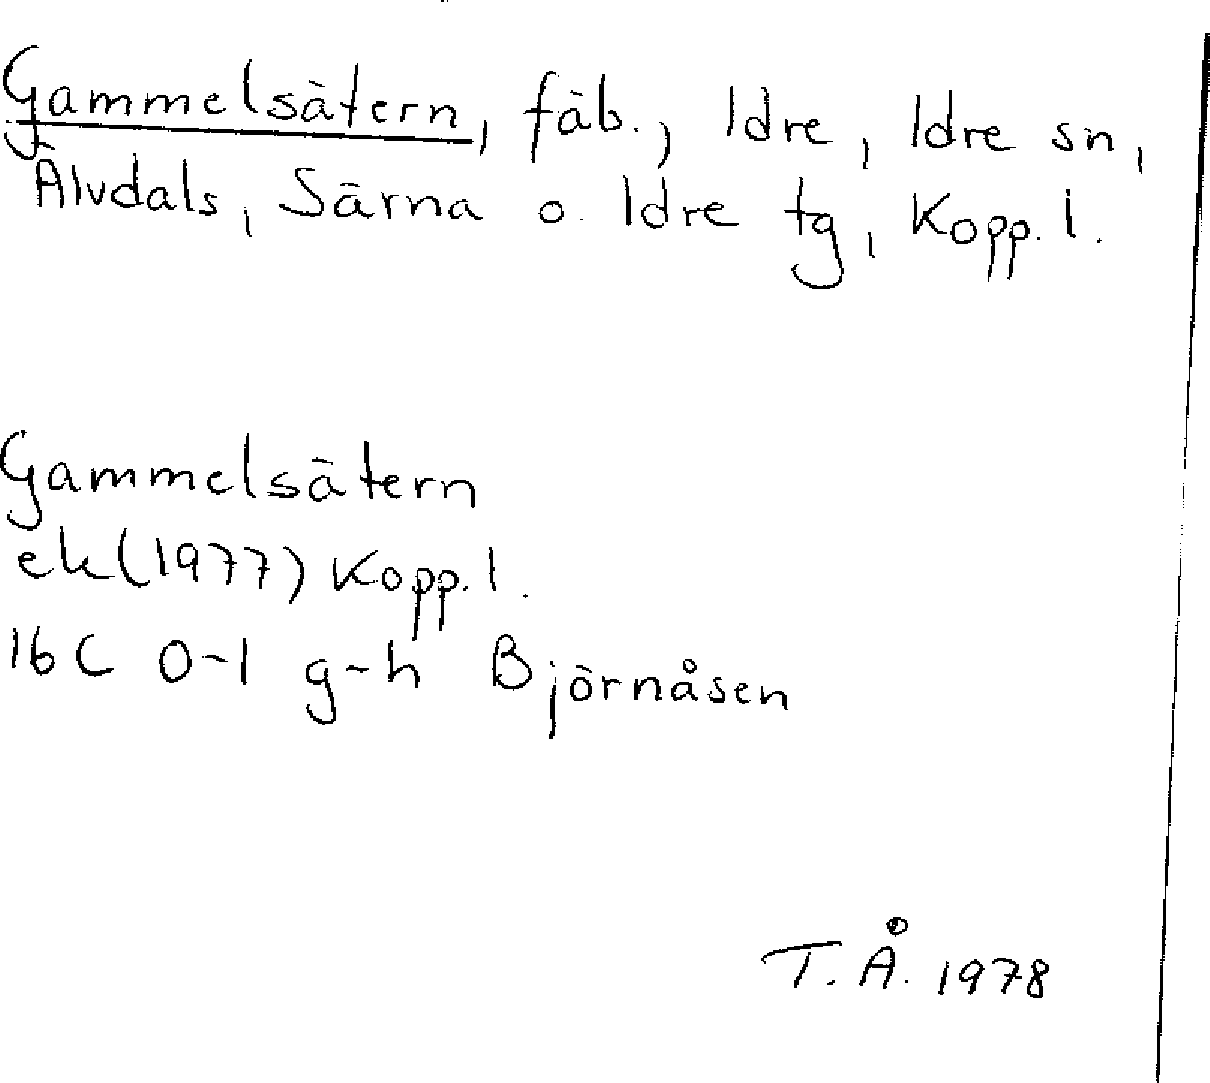 Gammelsätern, fäb., Idre, Idre sn,
Älvdals, Särna o. Idre tg, Kopp. l.
Gammelsätern
ek (1977) Kopp. l.
16 C 0-1 g-h Björnåsen
T. Å. 1978